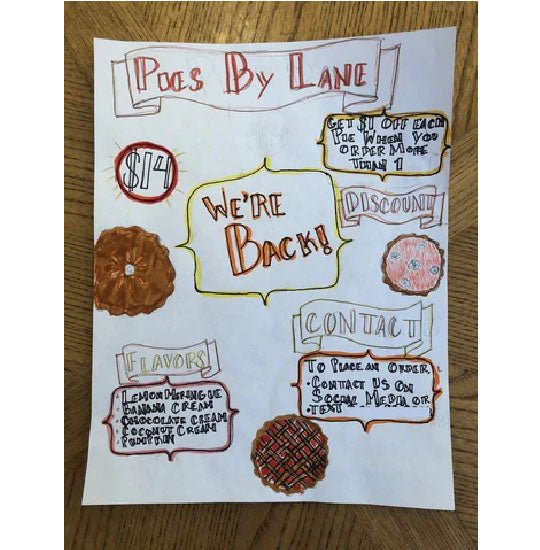 PIES BY LANE
GET $1 OFF EACH
PIE WHEN YOU
ORDER MORE
THAN 1
$14
DISCOUNT
WE'RE
BACK!
CONTACT
TO PLACE AN ORDER,
CONTACT US ON
SOCIAL MEDIA OR
TEXT
FLAVORS
· LEMON MERINGUE
· BANANA CREAM
· CHOCOLATE CREAM
· COCONUT CREAM
· PUMPKIN